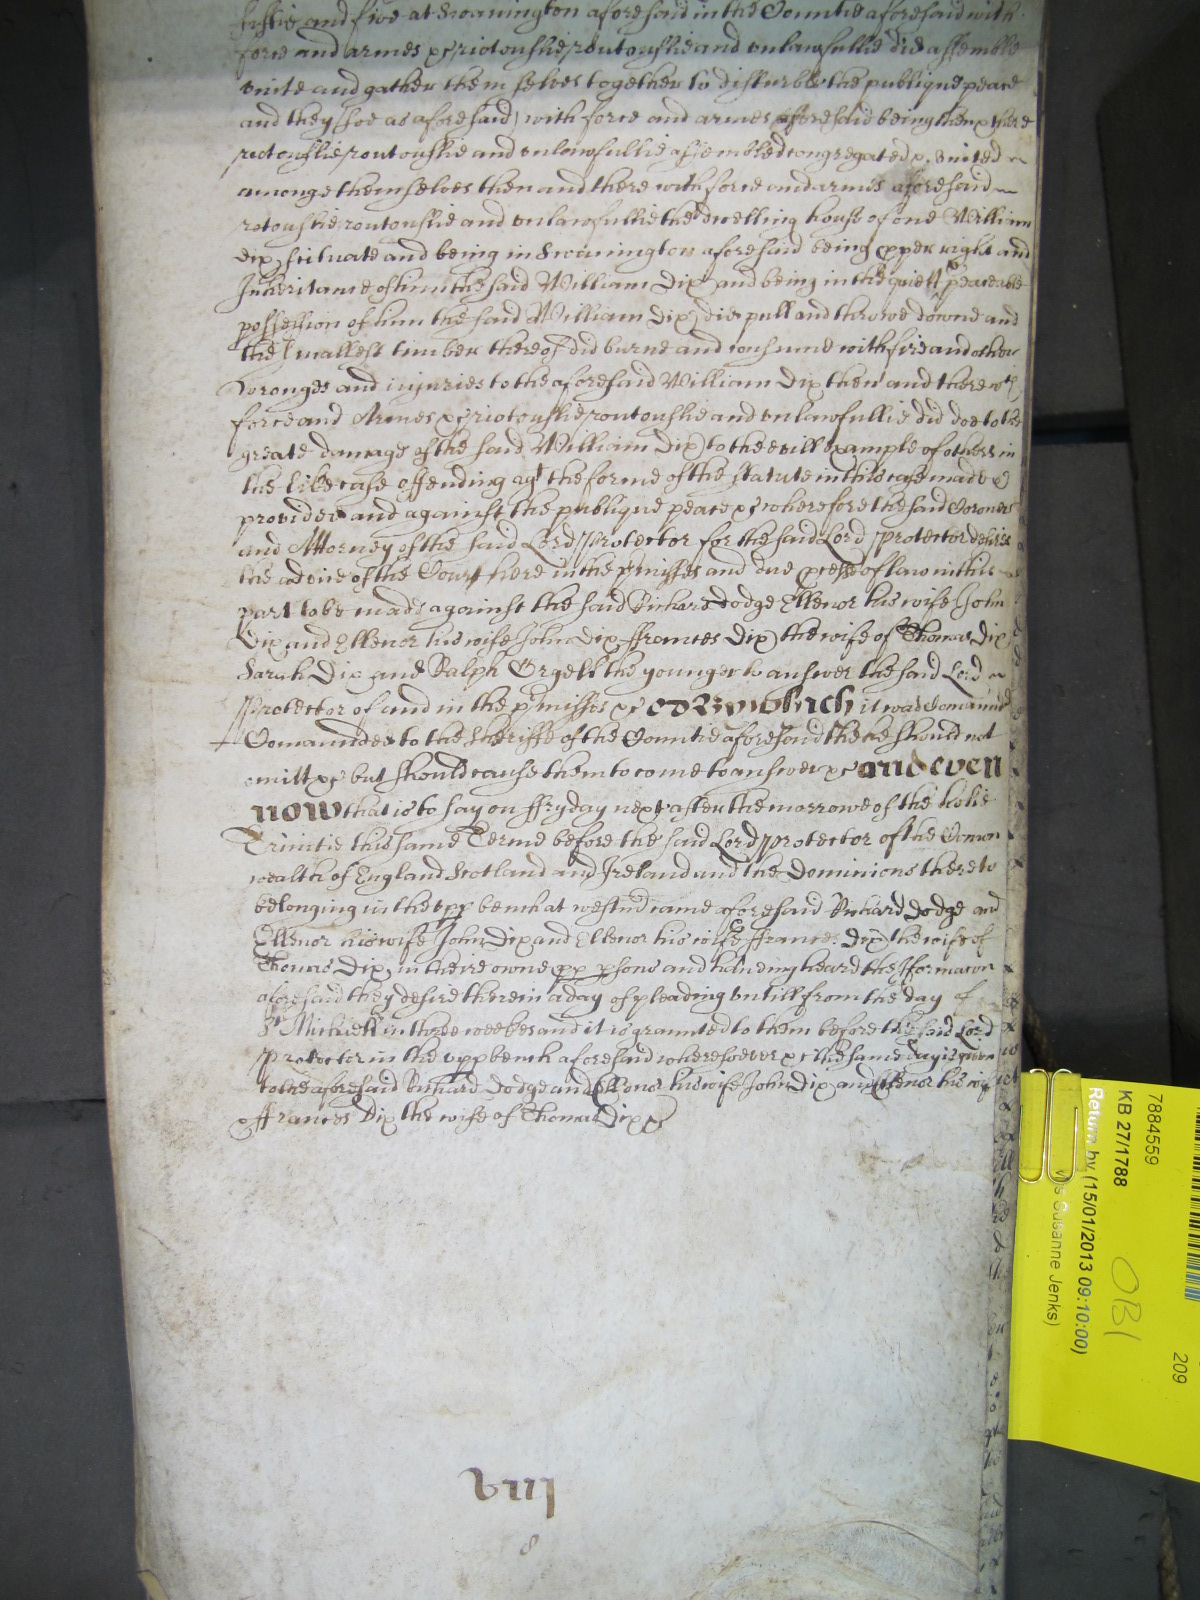 fiftie and five at Swanington aforesaid in the Countie aforesaid with
force and armes &c riotouslie routouslie and unlawfullie did assemble
unite and gather themselves together to disturbe the publique peace
and they soe as aforesaid with force and armes aforesaid being then & there
riotouslie routouslie and unlawfullie assembled congregated & united
amongst themselves then and there with force and armes aforesaid
riotouslie routouslie and unlawfullie the dwelling house of one William
Dix scituate and being in Swanington aforesaid being ye pper right and
Inheritance of him the said William Dix and being in the quiett & peaceable
possession of him the said William Dix did pull and throwe downe and
the smallest timber thereof did burne and consume with fire and other
wronges and injuries to the aforesaid William Dix then and there wth
force and Armes &c riotouslie routouslie and unlawfullie did doe to the
greate damage of the said William Dix to the evill example of others in
the like case offending agt the forme of the statute in this case made &
provided and against the publique peace &c wherefore the said Coroner
and Attorney of the said Lord Protector for the said Lord Protector desires
the advice of the Court here in the pmisses and due pcesse of law in this
part to be made against the said Richard Dodge Ellenor his wife John
Dix and Ellenor his wife John Dix ffrances Dix the wife of Thomas Dix
Sarah Dix and Ralph Orgell the younger to answer the said Lord
Protector of and in the pmisses &c to wch it was Comaunded
Comaunded to the Sheriffe of the Countie aforesaid that he should not
omitt &c but should cause them to come to answer &c and even
now that is to say on ffryday next after the morrowe of the holie
Trinitie this same Terme before the said Lord Protector of the Comon
wealth of England Scotland and Ireland and the Dominions thereto
belonging in the upp bench at westm came aforesaid Richard Dodge and
Ellenor his wife John Dix and Ellenor his wife ffrances Dix the wife of
Thomas Dix in theire owne pp psons and haveing heard the Iformacon
aforesaid they desire therein a day of pleading untill from the day of
St Michaell in three weekes and it is graunted to them before the said Lord
Protector in the upp bench aforesaid wheresoever &c the same day is given
to the aforesaid Richard Dodge and Ellenor his wife John Dix and Ellenor his wife
ffrances Dix the wife of Thomas Dix &c
viij
8
7884559
KB 27/1788
Return by (15/01/2013 09:10:00)
Susanne Jenks)
OB1
209